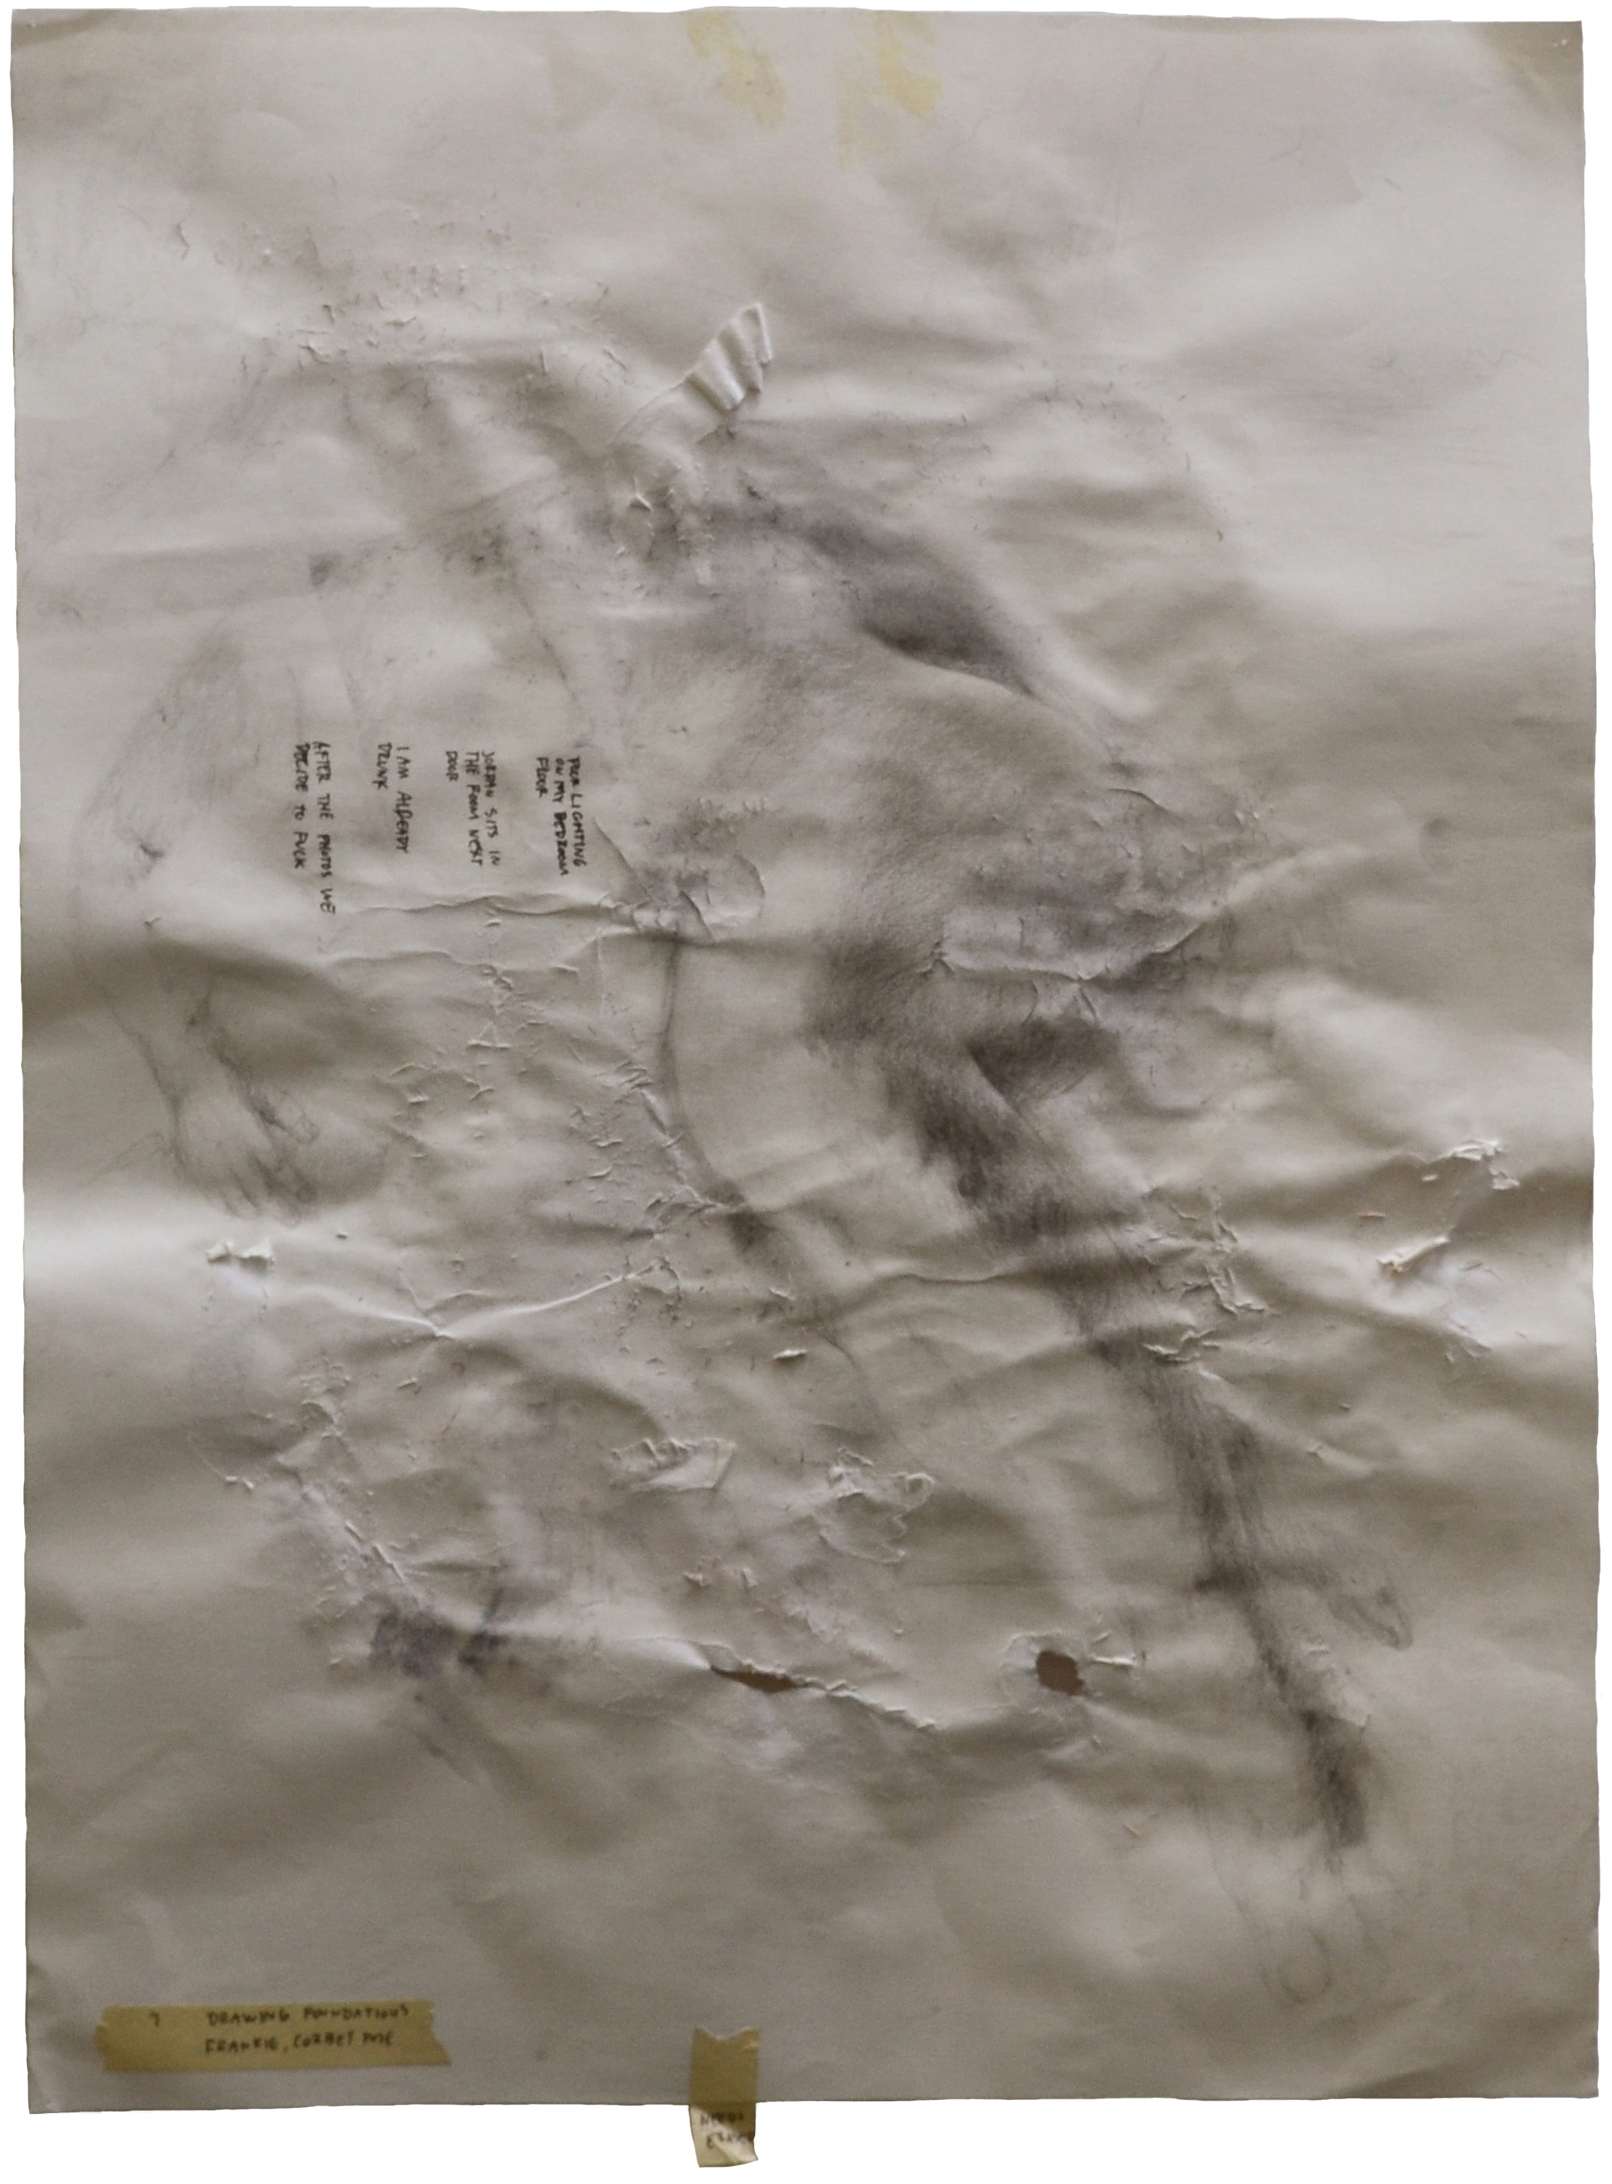 POOR LIGHTING
ON MY BEDROOM
FLOOR
JORDAN SITS IN
THE ROOM NEXT
DOOR
I AM ALREADY
DRUNK
AFTER THE PHOTOS WE
DECIDE TO FUCK
7 DRAWING FOUNDATIONS
FRANKIE, CORBET POSE
NEEDS